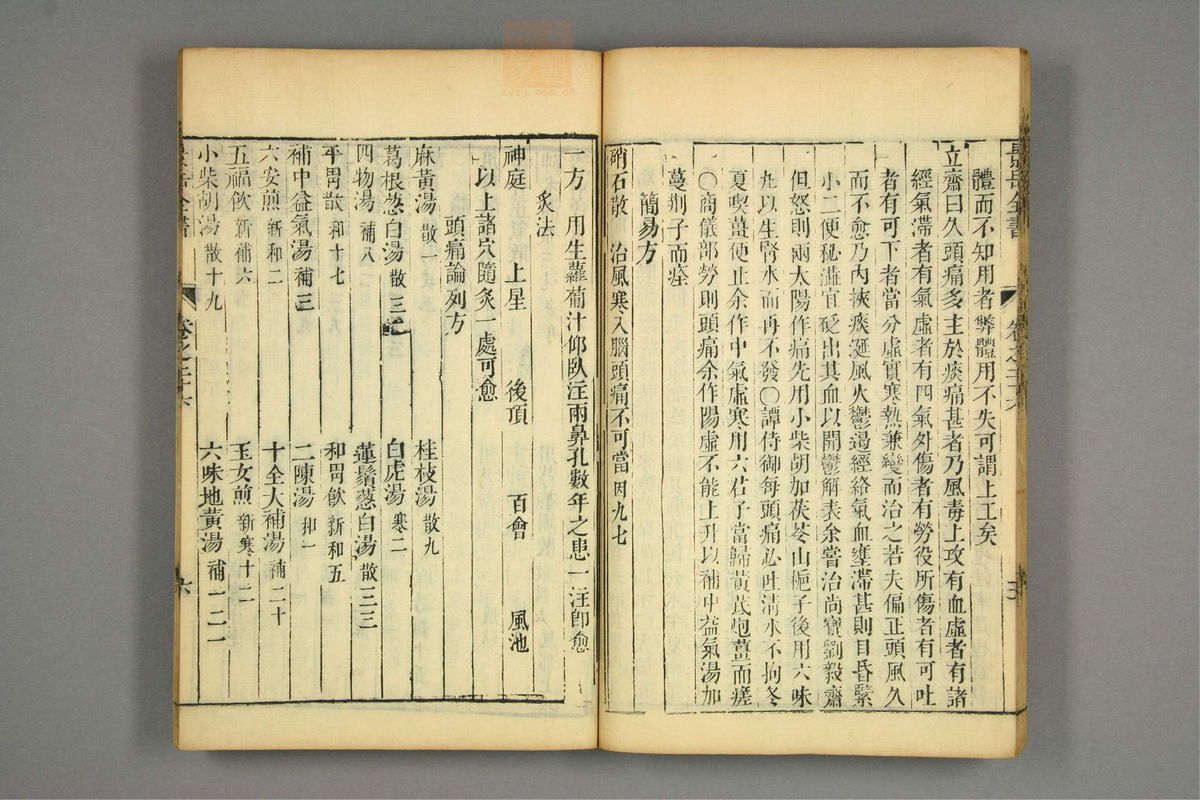 體而不知用者弊體用不失可謂上工矣
立齋曰久頭痛多主於痰痛甚者乃風毒上攻有血虛者有諸
經氣滯者有氣虛者有四氣外傷者有勞役所傷者有可吐
者有可下者當分虛實寒熱兼變而治之若夫偏正頭風久
而不愈乃內挾痰涎風火鬱遏經絡氣血壅滯甚則目昏緊
小二便秘澁宜砭出其血以開鬱解表余嘗治尚寶劉毅齋
但怒則兩太陽作痛先用小柴胡加茯苓山梔子後用六味
丸以生腎水而再不發〇譚侍御每頭痛必吐清水不拘冬
夏喫薑便止余作中氣虛寒用六君子當歸黃芪炮薑而瘥
〇商儀部勞則頭痛余作陽虛不能上升以補中益氣湯加
蔓荆子而痊
簡易方
硝石散 治風寒入腦頭痛不可當 因九七
景岳全書 卷之二十六 五
一方 用生蘿蔔汁仰臥注兩鼻孔數年之患一注卽愈
灸法
神庭 上星 後頂 百會 風池
以上諸穴隨灸一處可愈
頭痛論列方
麻黃湯 散一 桂枝湯 散九
葛根葱白湯 散三二 白虎湯 寒二
四物湯 補八 蓮鬚葱白湯 散三三
平胃散 和十七 和胃飲 新和五
補中益氣湯 補三 二陳湯 和一
六安煎 新和二 十全大補湯 補二十
五福飲 新補六 玉女煎 新寒十二
小柴胡湯 散十九 六味地黃湯 補一二一
景岳全書 卷之二十六 六